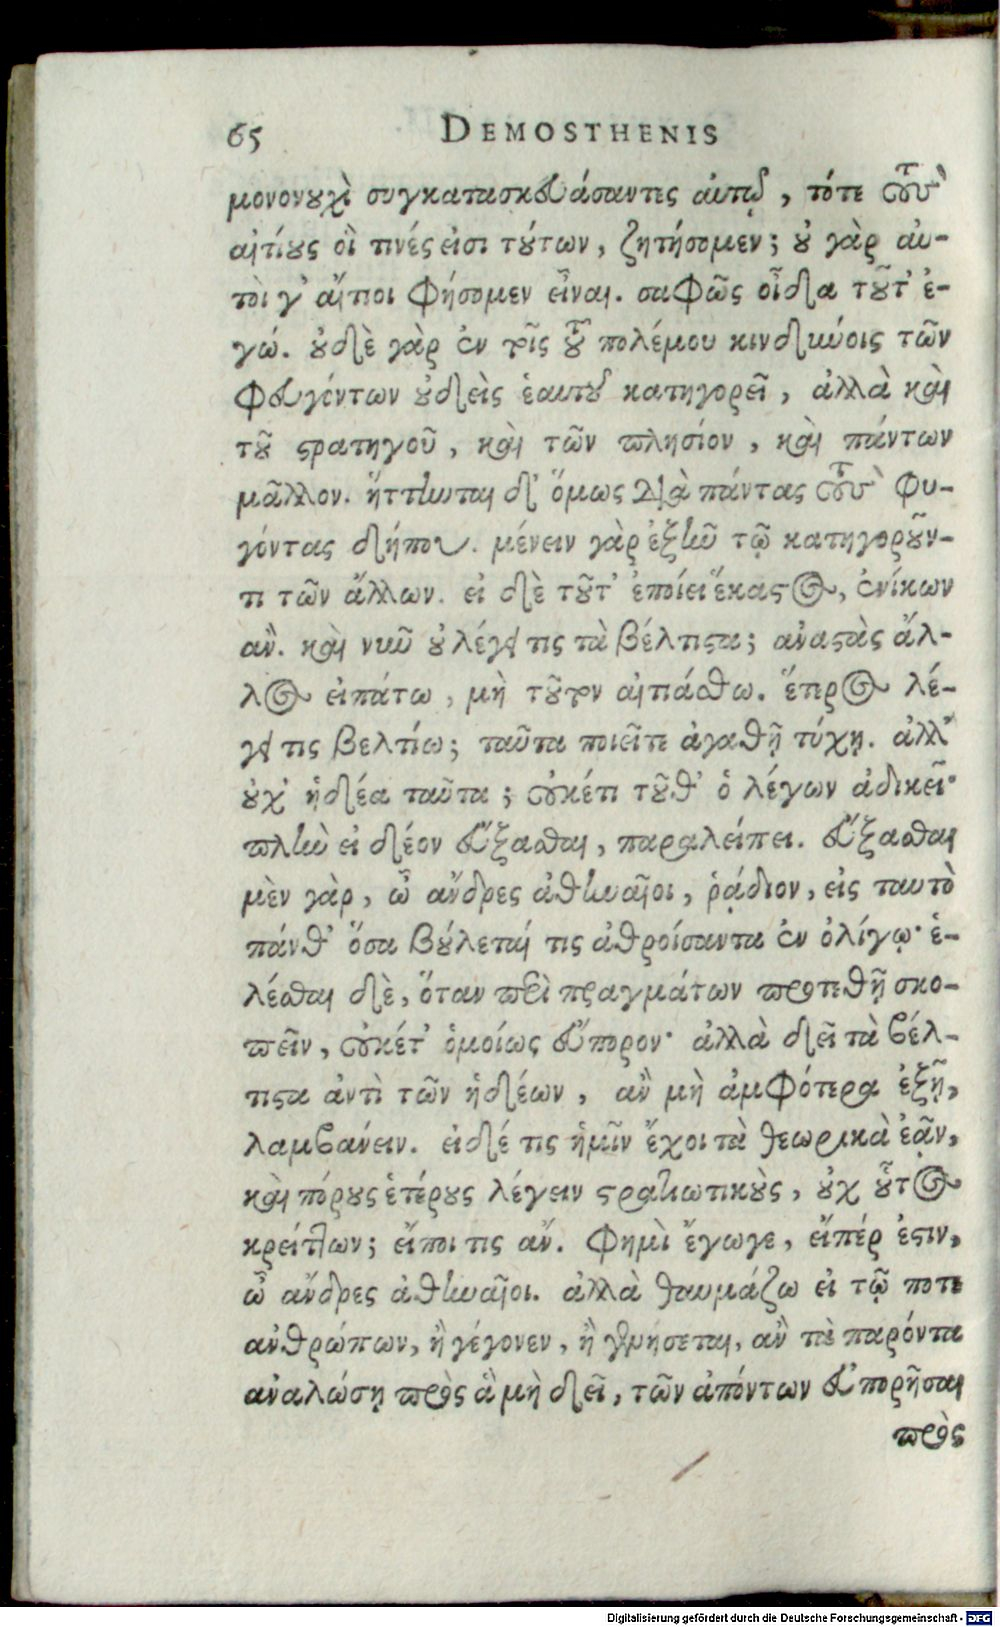 65 DEMOSTHENIS
μονονουχὶ συγκατασκευάσαντες αὐτῷ, τότε τοὺς
αἰτίους οἵ τινές εἰσι τούτων, ζητήσομεν; οὐ γὰρ αὐ-
τοὶ γ' αἴτιοι φήσομεν εἶναι. σαφῶς οἶδα τοῦτ' ἐ-
γώ. οὐδὲ γὰρ ἐν τοῖς τοῦ πολέμου κινδύνοις τῶν
φευγόντων οὐδεὶς ἑαυτοῦ κατηγορεῖ, ἀλλὰ καὶ
τοῦ στρατηγοῦ, καὶ τῶν πλησίον, καὶ πάντων
μᾶλλον. ἥττηνται δ' ὅμως διὰ πάντας τοὺς φυ-
γόντας δήπου. μένειν γὰρ ἐξῆν τῷ κατηγοροῦν-
τι τῶν ἄλλων. εἰ δὲ τοῦτ' ἐποίει ἕκαστος, ἐνίκων
ἄν. καὶ νῦν οὐ λέγει τις τὰ βέλτιστα; ἀναστὰς ἄλ-
λος εἰπάτω, μὴ τοῦτον αἰτιάσθω. ἕτερος λέ-
γει τις βελτίω; ταῦτα ποιεῖτε ἀγαθῇ τύχῃ. ἀλλ'
οὐχ' ἡδέα ταῦτα; οὐκέτι τοῦθ' ὁ λέγων ἀδικεῖ·
πλὴν εἰ δέον εὔξασθαι, παραλείπει. εὔξασθαι
μὲν γὰρ, ὦ ἄνδρες ἀθηναῖοι, ῥᾴδιον, εἰς ταυτὸ
πάνθ' ὅσα βούλεταί τις ἀθροίσαντα ἐν ὀλίγῳ· ἑ-
λέσθαι δὲ, ὅταν περὶ πραγμάτων προτεθῇ σκο-
πεῖν, οὐκέτ' ὁμοίως εὔπορον· ἀλλὰ δεῖ τὰ βέλ-
τιστα ἀντὶ τῶν ἡδέων, ἂν μὴ ἀμφότερα ἐξῇ,
λαμβάνειν. εἰ δέ τις ἡμῖν ἔχοι τὰ θεωρικὰ ἐᾷν,
καὶ πόρους ἑτέρους λέγειν στρατιωτικοὺς, οὐχ οὗτος
κρείττων; εἴποι τις ἄν. φημὶ ἔγωγε, εἴπέρ ἐστιν,
ὦ ἄνδρες ἀθηναῖοι. ἀλλὰ θαυμάζω εἰ τῷ ποτε
ἀνθρώπων, ἢ γέγονεν, ἢ γενήσεται, ἂν τὰ παρόντα
ἀναλώσῃ πρὸς ἃ μὴ δεῖ, τῶν ἀπόντων εὐπορῆσαι
πρὸς
Digitalisierung gefördert durch die Deutsche Forschungsgemeinschaft - DFG